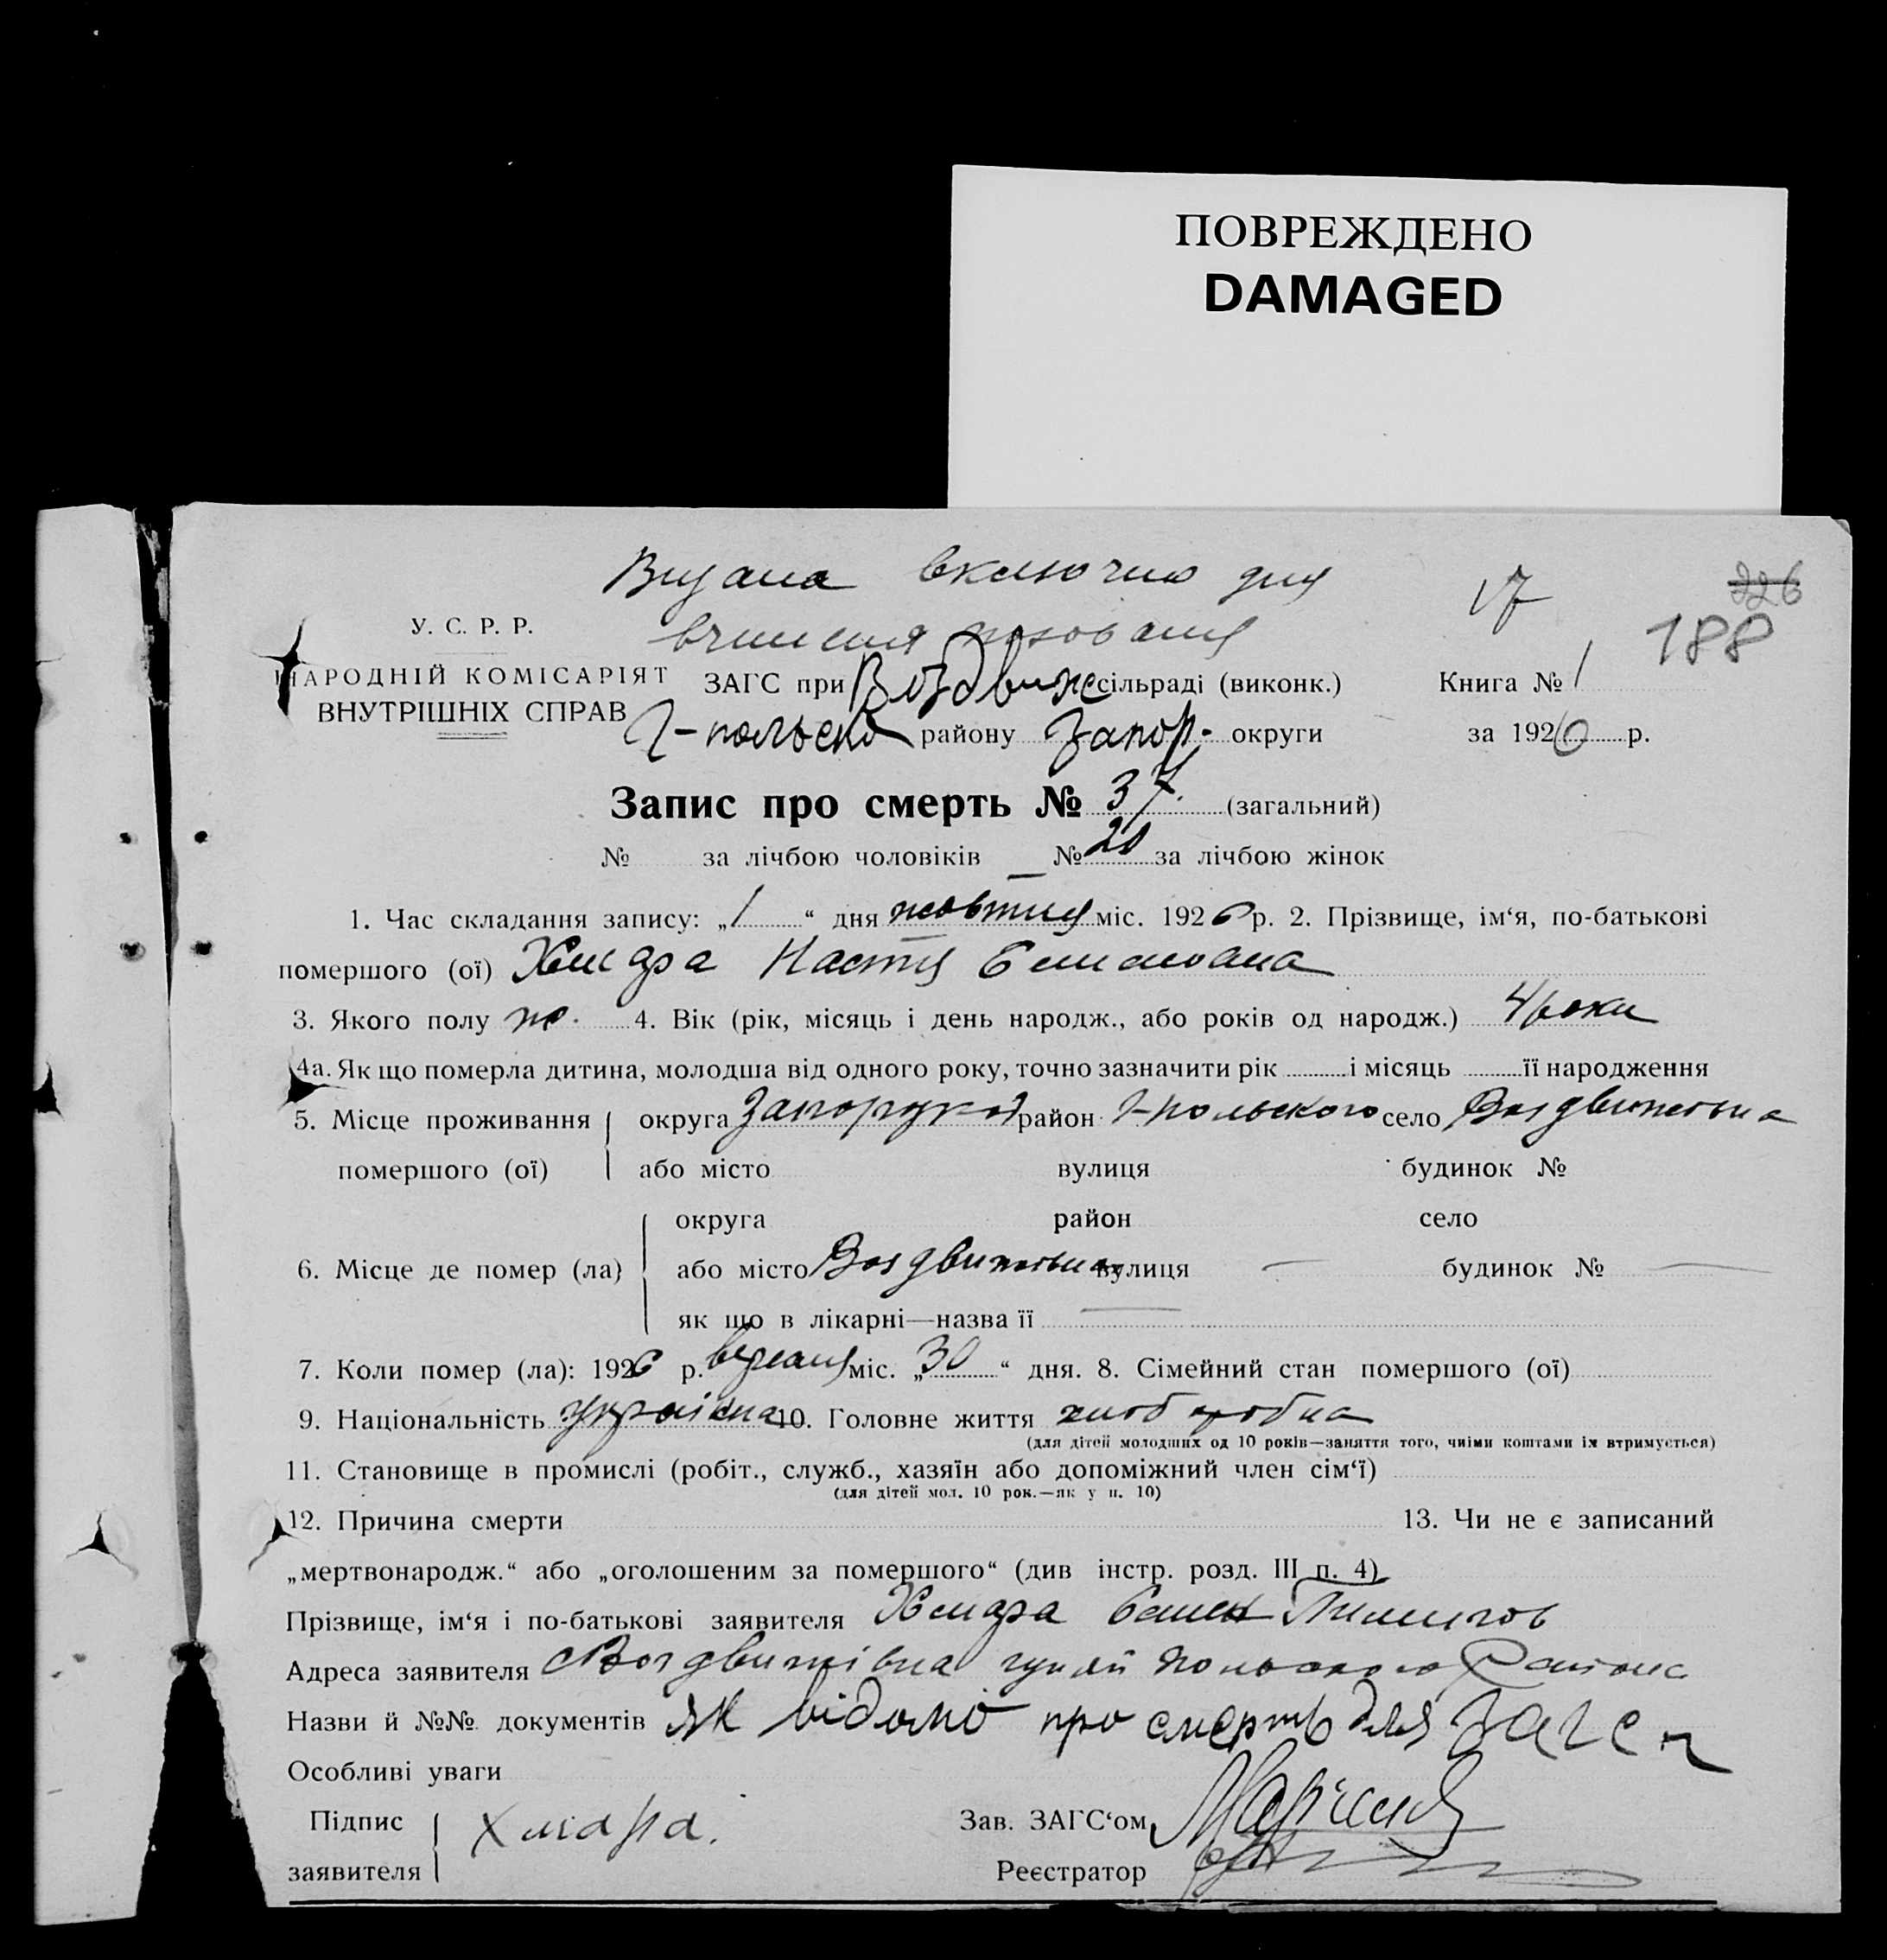 ПОВРЕЖДЕНО
DAMAGED
Видана виключно для
17
226
188
У. С. Р. Р.
НАРОДНІЙ КОМІСАРІЯТ
ВНУТРІШНІХ СПРАВ
ЗАГС при Воздвиж сільраді (виконк.)
Книга № 1
Г-польско району Запор. округи
за 1926 р.
Запис про смерть № 37. (загальний)
№ за лічбою чоловіків № 20 за лічбою жінок
1. Час складання запису: „1“ дня жовтня міс. 1926 р. 2. Прізвище, ім‘я, по-батькові
помершого (ої) Хмара Настя
3. Якого полу ж. 4. Вік (рік, місяць і день народж., або років од народж.) 4 роки
4а. Як що померла дитина, молодша від одного року, точно зазначити рік і місяць її народження
5. Місце проживання округа район Г-польского село Воздвиженка
помершого (ої) або місто вулиця будинок №
округа район село
6. Місце де помер (ла) або місто Воздвиженка вулиця — будинок № —
як що в лікарні—назва її —
7. Коли помер (ла): 1926 р. вересня міс. „30“ дня. 8. Сімейний стан помершого (ої)
9. Національність україна 10. Головне життя хлібробка
(для дітей молодших од 10 років—заняття того, чиїми коштами їх втримується)
11. Становище в промислі (робіт., служб., хазяїн або допоміжний член сім‘ї)
(для дітей мол. 10 рок.—як у п. 10)
12. Причина смерти 13. Чи не є записаний
„мертвонародж.“ або „оголошеним за помершого“ (див інстр. розд. III п. 4)
Прізвище, ім‘я і по-батькові заявителя Хмара
Адреса заявителя Воздвижівна гуляй польского Района
Назви й №№ документів як відомо про смерть для Загса
Особливі уваги
Підпис
заявителя Хмара.
Зав. ЗАГС‘ом
Реєстратор